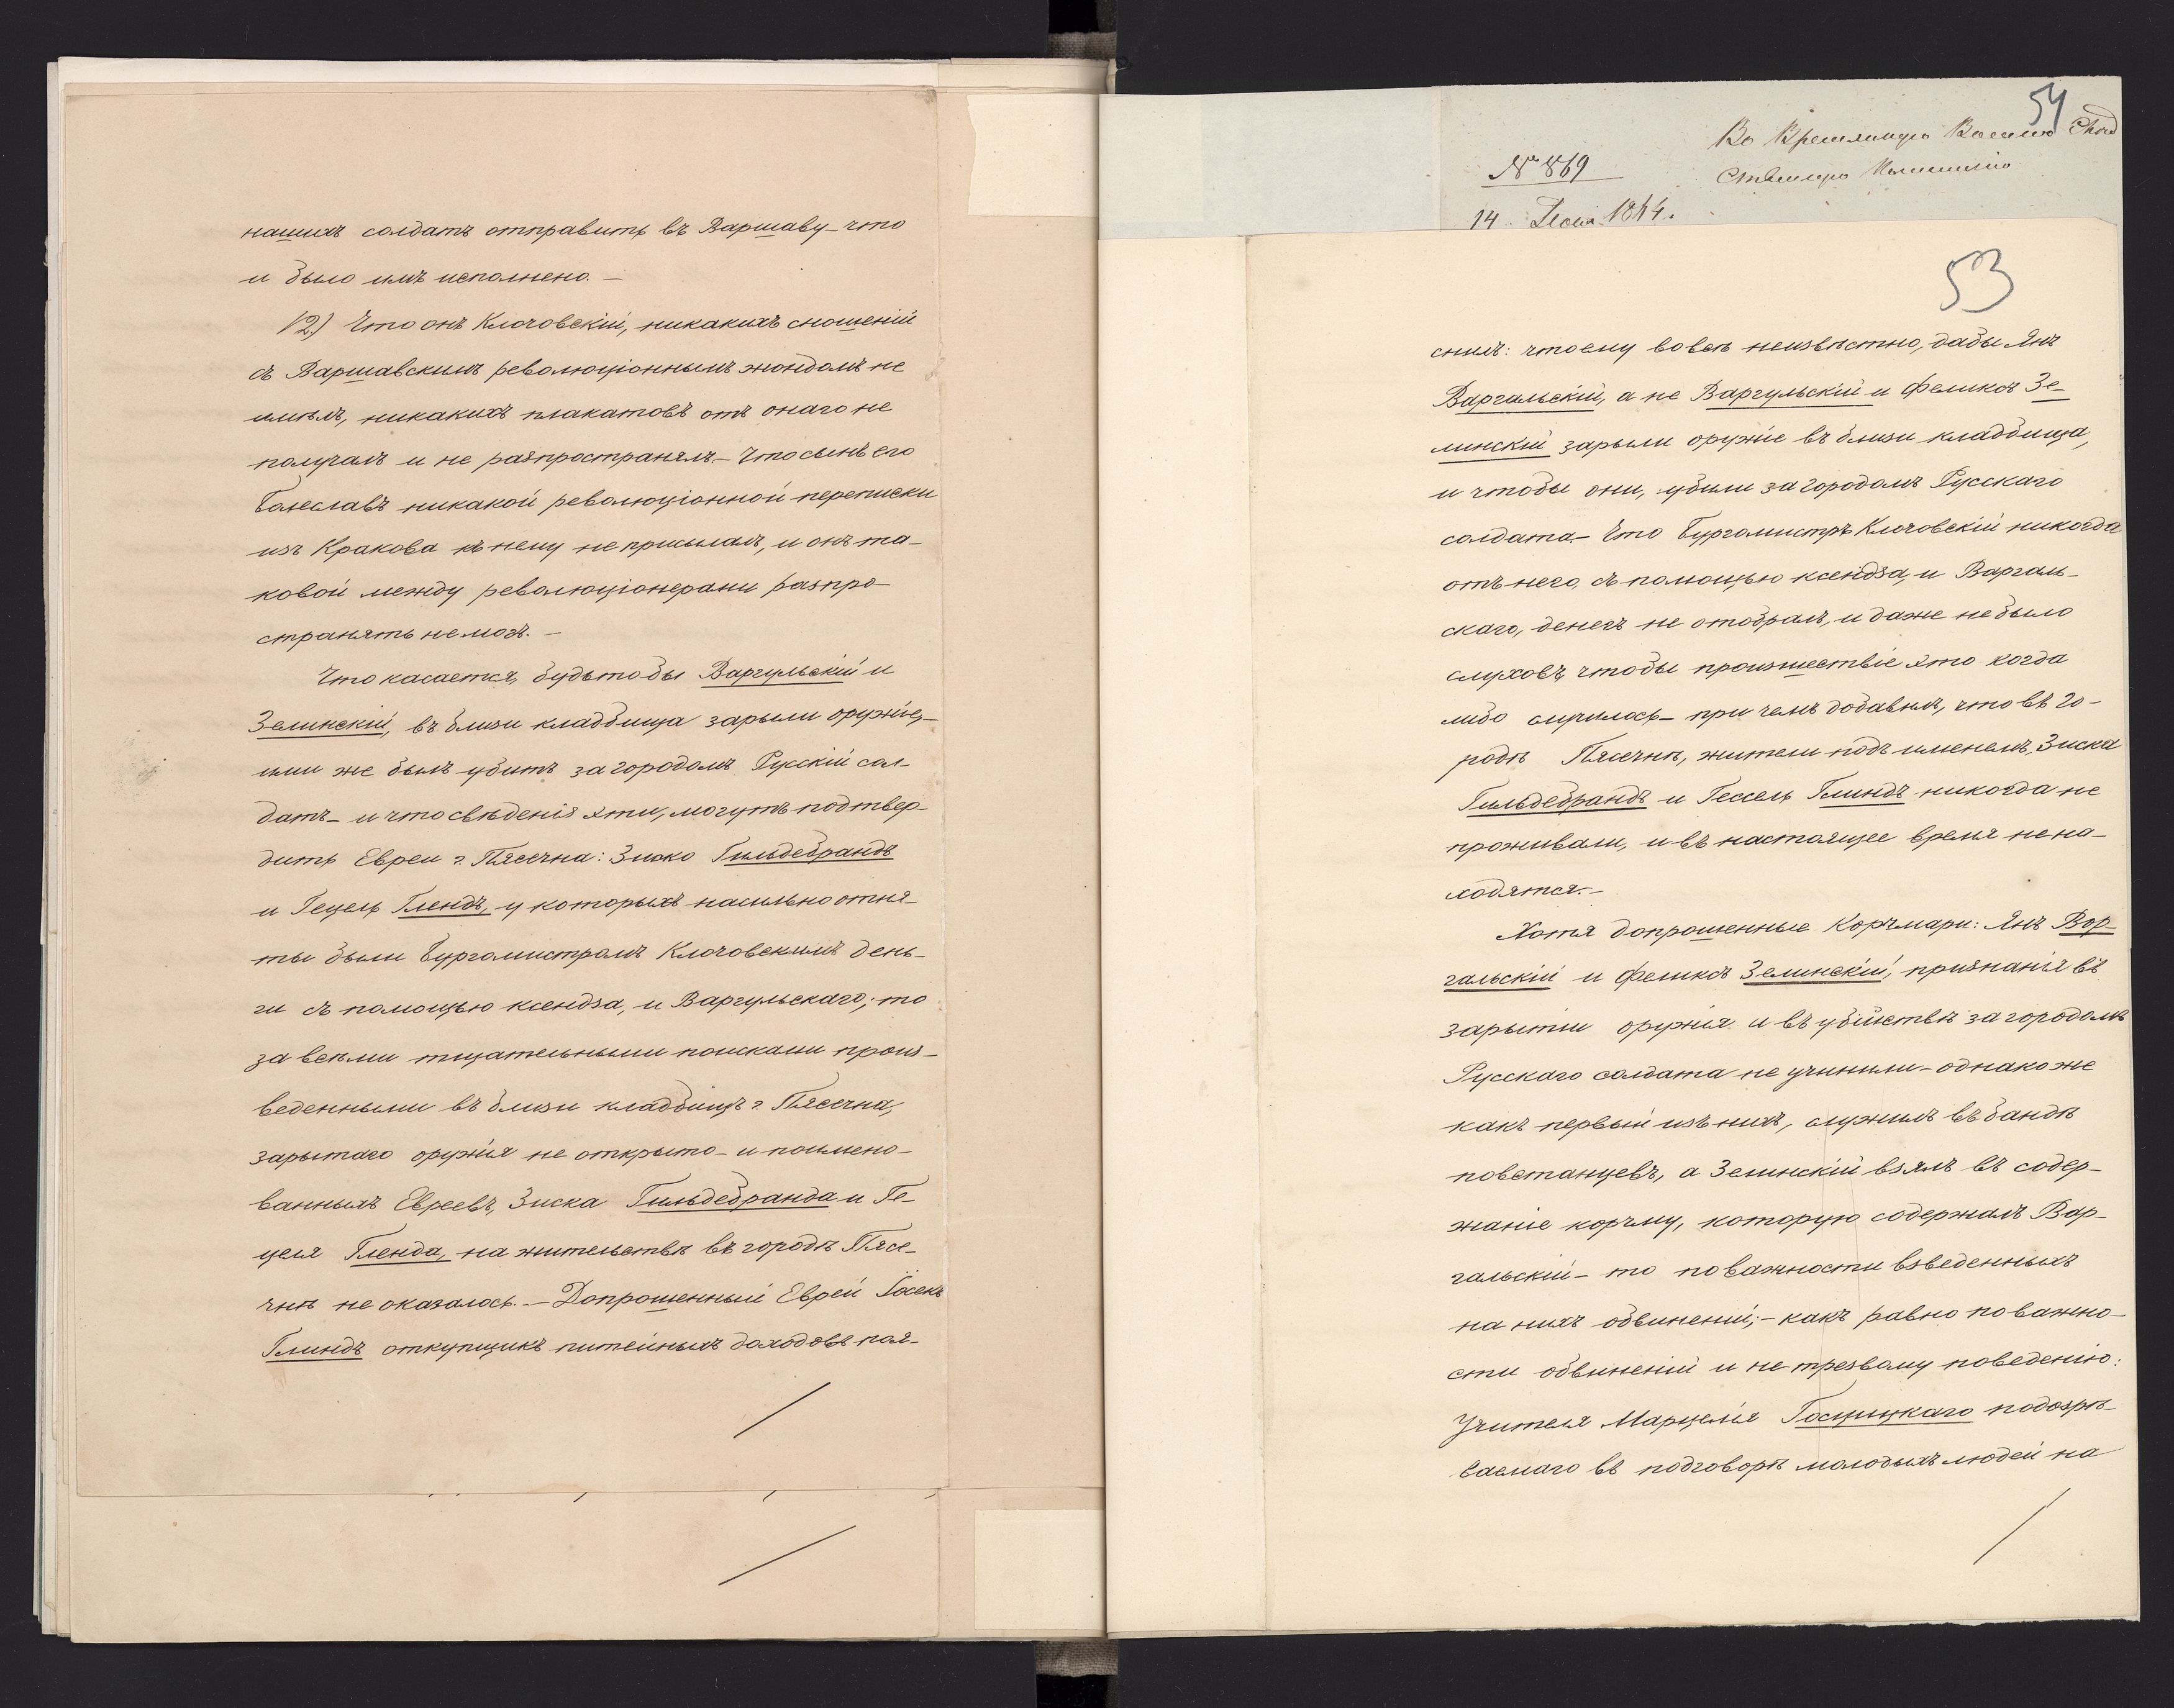 нашихъ солдатъ отправить въ Варшаву – что
и было имъ исполнено. –
12.) Что онъ Клочовскій, никакихъ сношеній
съ Варшавскимъ революціоннымъ жондомъ не
имѣлъ, никакихъ плакатовъ отъ онаго не
получалъ и не разпространялъ. – Что сынъ его
Болеславъ никакой революціонной переписки
изъ Кракова къ нему не присылалъ, и онъ та-
ковой между революціонерами разпро-
странять немогъ. –
Что касается, будьтобы Варгульскій и
Зелинскій, въ близи кладбища зарыли оружіе, –
или же былъ убитъ за городомъ Русскій сол-
датъ – и что свѣденія эти, могутъ подтвер-
дить Евреи г. Пясечна: Зиско Гильдебрандъ
и Гецель Глендъ, у которыхъ насильно отня-
ты были Бургомистромъ Клочовскимъ день-
ги съ помощью ксендза, и Варгульскаго; то
за всѣми тщательными поисками произ-
веденными въ близи кладбищъ г. Пясечна,
зарытаго оружія не открыто – и поимено-
ванныхъ Евреевъ, Зиска Гильдебранда и Ге-
целя Гленда, на жительствѣ въ городѣ Пясе-
чнѣ не оказалось. – Допрошенный Еврей Іосекъ
Глиндъ откупщикъ питейныхъ доходовъ поя-
54
Во Временную Военно
№ 869
14 1864.
53
снилъ: что ему вовсѣ неизвѣстно, дабы Янъ
Варгальскій, а не Варгульскій и Феликсъ Зе-
линскій зарыли оружіе въ близи кладбища,
и чтобы они, убили за городомъ Русскаго
солдата – Что Бургомистръ Клочовскій никогда
отъ него, съ помощью ксендза, и Варгаль-
скаго, денегъ не отобралъ, и даже не было
слуховъ, чтобы произшествіе это когда
либо случилось – при чемъ добавилъ, что въ го-
родѣ Пясечнѣ, жители подъ именемъ, Зиска
Гильдебрандъ и Гессель Глиндъ никогда не
проживали, и въ настоящее время нена-
ходятся. –
Хотя допрошенные Корчмари: Янъ Вор-
гальскій и Феликсъ Зелинскій, признанія въ
зарытіи оружія и въ убійствѣ за городомъ
Русскаго солдата не учинили – однакоже
какъ первый изъ нихъ, служилъ въ бандѣ
повстанцевъ, а Зелинскій взялъ въ содер-
жаніе корчму, которую содержалъ Вар-
гальскій – то по важности взведенныхъ
на нихъ обвиненій; – какъ равно по важно-
сти обвиненій и не трезвому поведенію:
Учителя Марцелія Госцицкаго подозрѣ-
ваемаго въ подговорѣ молодыхъ людей на